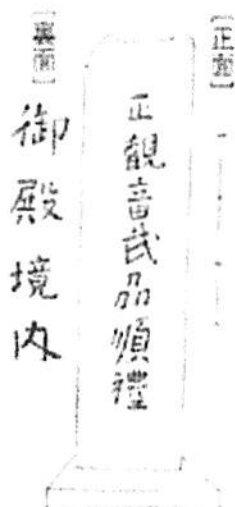 【正面】
正観音弐品順禮
【裏面】
御殿境内